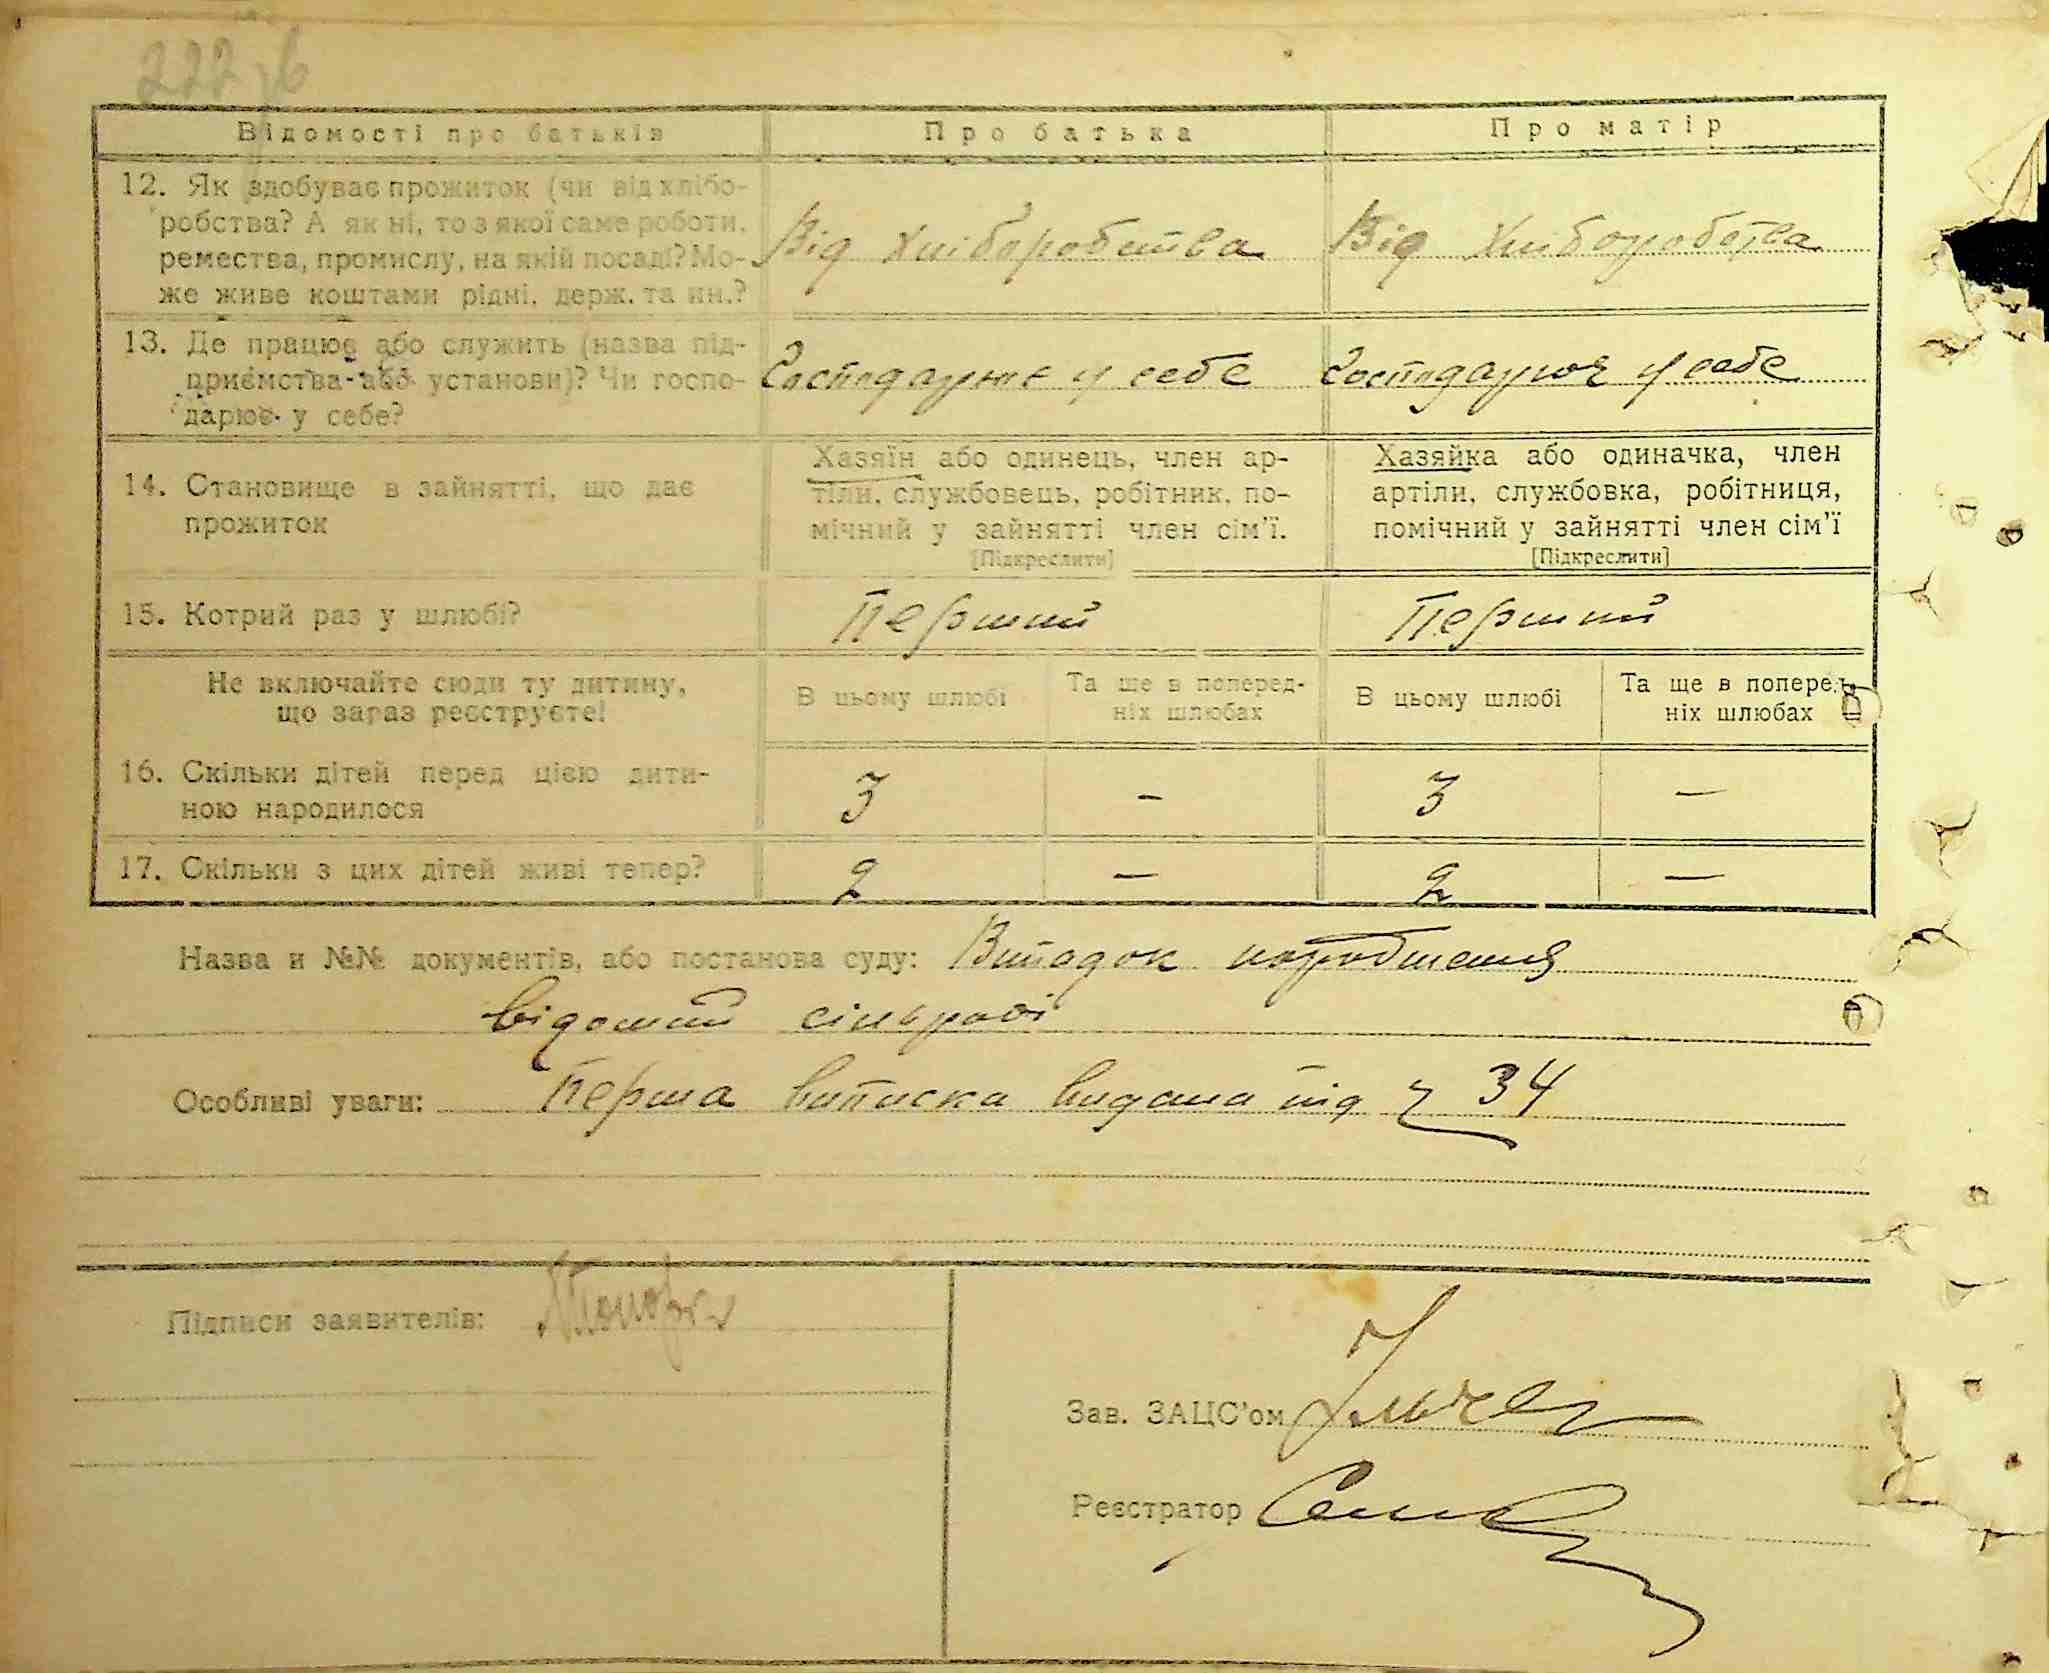 Відомості про батьків Про батька Про матір
12. Як здобуває прожиток (чи від хлібо-
робства? А як ні, то з якої саме роботи,
ремества, промислу, на якій посаді? Мо-
же живе коштами рідні, держ. та ин.?
Від хліборобства Від хліборобства
13. Де працює або служить (назва під-
приємства або установи)? Чи госпо-
дарює у себе?
Господарює у себе Господарює у себе
14. Становище в зайнятті, що дає
прожиток
Хазяїн або одинець, член ар-
тіли, службовець, робітник, по-
мічний у зайнятті член сім'ї.
[Підкреслити]
Хазяйка або одиначка, член
артіли, службовка, робітниця,
помічний у зайнятті член сім'ї
[Підкреслити]
15. Котрий раз у шлюбі? Перший Перший
Не включайте сюди ту дитину,
що зараз реєструєте!
В цьому шлюбі
Та ще в поперед-
ніх шлюбах
В цьому шлюбі
Та ще в поперед-
ніх шлюбах
16. Скільки дітей перед цією дити-
ною народилося
3 — 3 —
17. Скільки з цих дітей живі тепер? 2 — 2 —
Назва и №№ документів, або постанова суду: Випадок народження
відомий сільраді
Особливі уваги: Перша виписка видана під ч 34
Підписи заявителів:
Зав. ЗАЦС'ом
Реєстратор